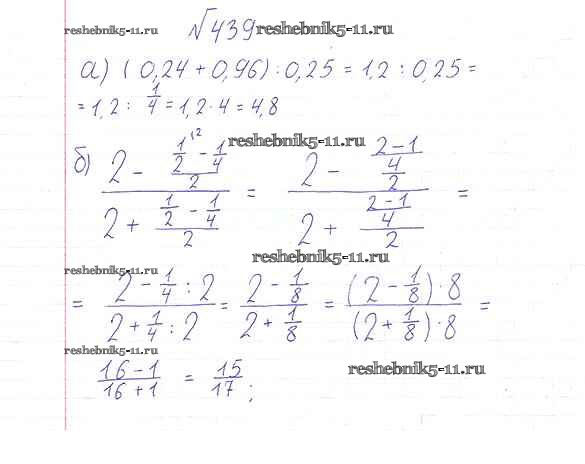 reshebnik5-11.ru №439 reshebnik5-11.ru
а) (0,24 + 0,96) : 0,25 = 1,2 : 0,25 =
= 1,2 : 1/4 = 1,2 · 4 = 4,8
reshebnik5-11.ru
б) (2 - (1/2 ^(2) - 1/4)/2)/(2 + (1/2 - 1/4)/2) = (2 - ((2-1)/4)/2)/(2 + ((2-1)/4)/2) =
reshebnik5-11.ru reshebnik5-11.ru
= (2 - 1/4 : 2)/(2 + 1/4 : 2) = (2 - 1/8)/(2 + 1/8) = ((2 - 1/8) · 8)/((2 + 1/8) · 8) =
reshebnik5-11.ru reshebnik5-11.ru
(16 - 1)/(16 + 1) = 15/17 ;